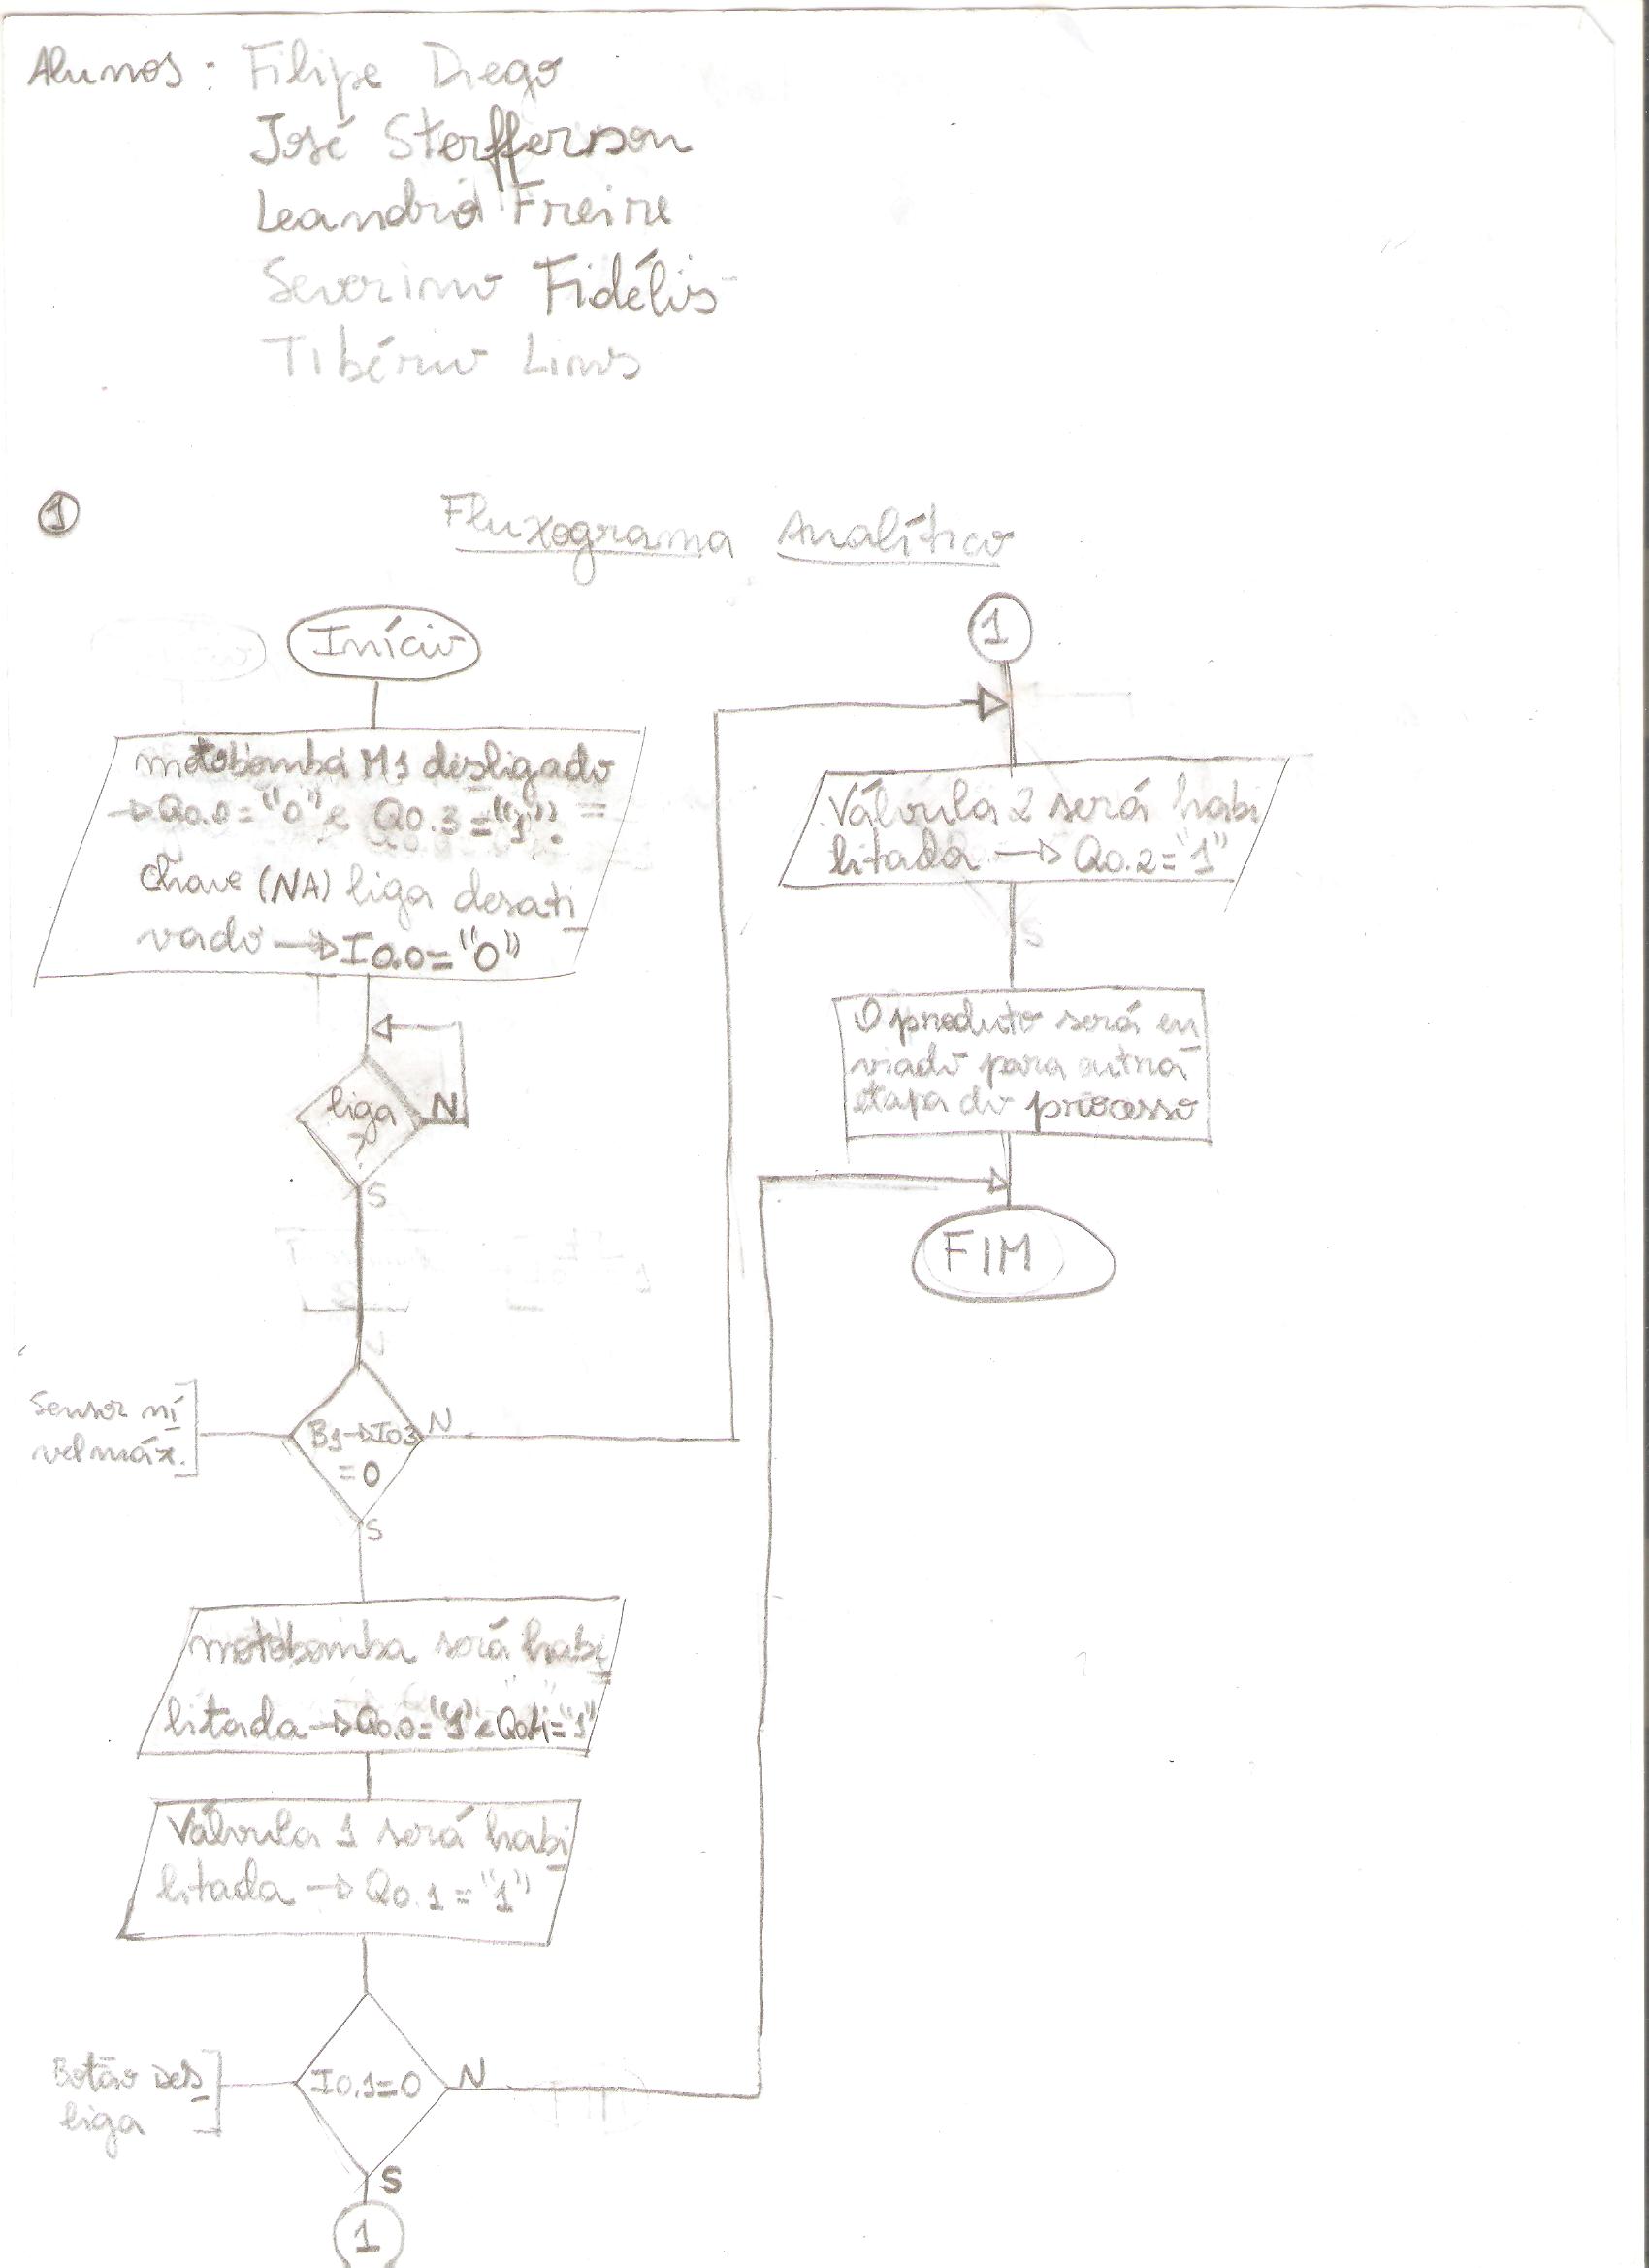 Alunos: Filipe Diego
José Stefferson
Leandro Freire
Severino Fidélis
Tibério Lins
1
Fluxograma Analítico
Início
motobomba M1 desligado
→Q0.0="0" e Q0.3="1".
Chave (NA) liga desati
vado →I0.0="0"
liga
?
N
S
Sensor ní
vel máx.
B1→I0.3
=0
N
S
motobomba será habi
litada→Q0.0="1" e Q0.4="1"
Válvula 1 será habi
litada →Q0.1="1"
Botão Des
liga
I0.1=0
N
S
1
1
Válvula 2 será habi
litada →Q0.2="1"
O produto será en
viado para outra
etapa do processo
FIM